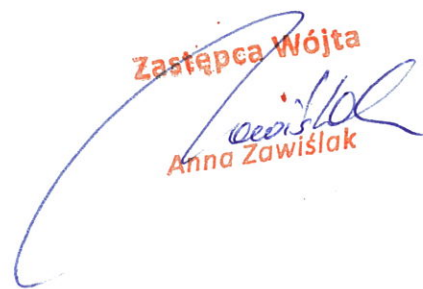 Zastępca Wójta
Zawiślak
Anna Zawiślak